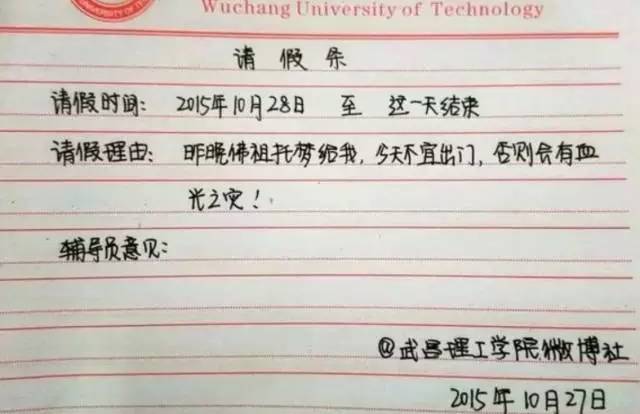 Wuchang University of Technology
请假条
请假时间: 2015年10月28日 至 这一天结束
请假理由: 昨晚佛祖托梦给我,今天不宜出门,否则会有血
光之灾!
辅导员意见:
@武昌理工学院微博社
2015年10月27日